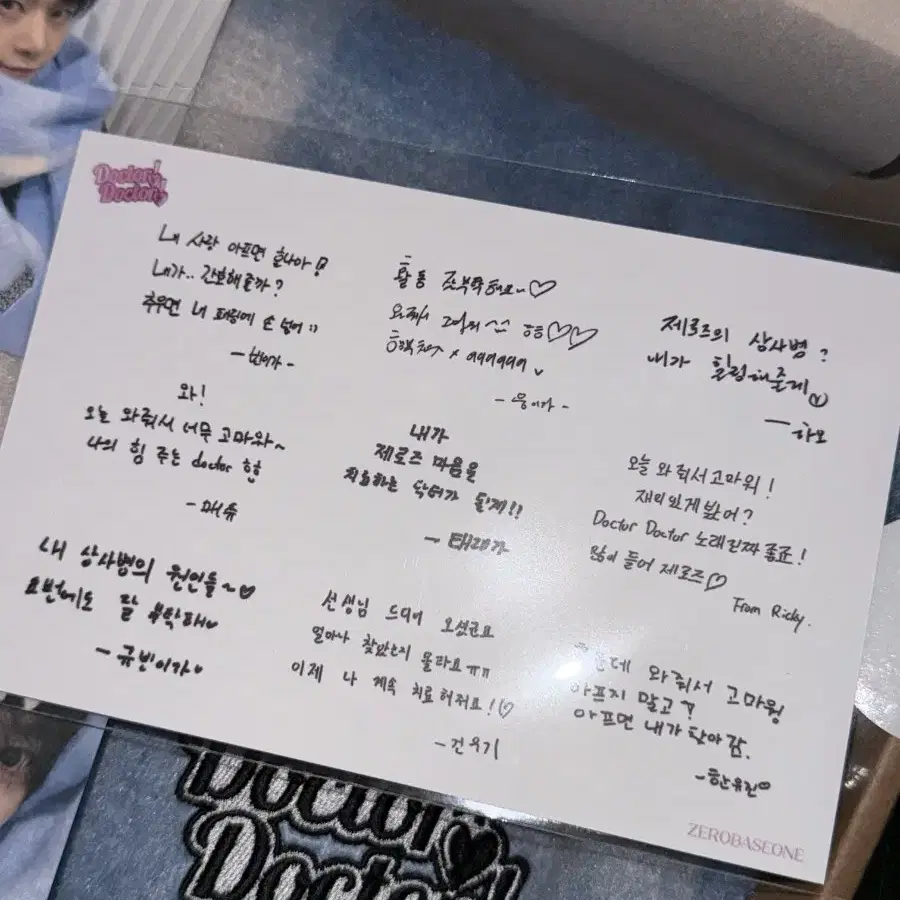 Doctor!
Doctor!
내 사랑 아프면 혼나아!
내가.. 간호해줄까?
추우면 내 패딩에 손 넣어 :)
와!
오늘 와줘서 너무 고마와~
나의 힘 주는 doctor 형
- 매튜
내 상사병의 원인들~♡
요번에도 잘 부탁해♡
- 규빈이가♡
활동
내가
제로즈 마음을
치료하는 닥터가 될게!!
- 태래가
선생님 드디어 오셨군요
얼마나 찾았는지 몰라요ㅠㅠ
이제 나 계속 치료해줘요!♡
- 건욱기
제로즈의 상사병?
내가 힐링해줄게
- 하오
오늘 와줘서 고마워!
재미있게 봤어?
Doctor Doctor 노래 진짜 좋죠!
많이 들어 제로즈♡
From Ricky.
와줘서 고마웡
아프지 말고?
아프면 내가 닥아감.
- 한유진♡
ZEROBASEONE
Doctor!
Doctor!